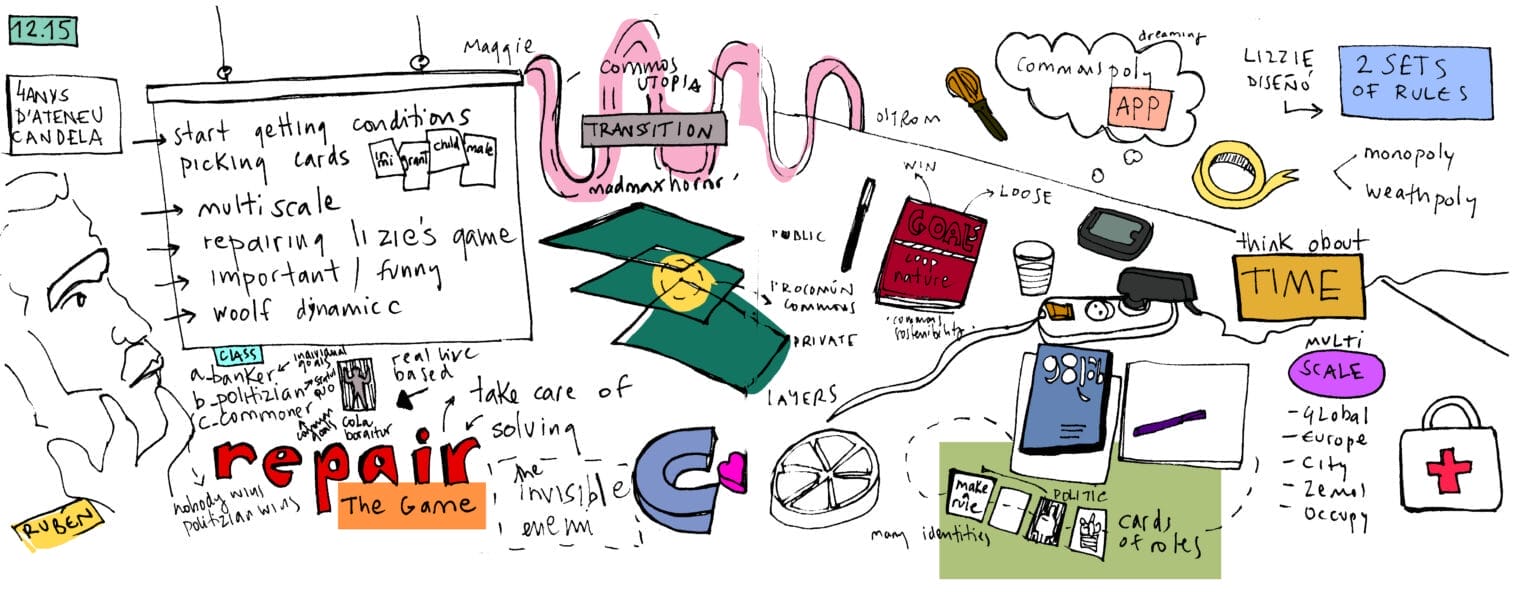 12.15
4ANYS
D'ATENEU
CANDELA
start getting conditions
picking cards
inmi
grant
child
male
multiscale
repairing lizie's game
important / funny
woolf dynamicc
RUBÉN
CLASS
a_banker
individual
goals
b_politizian
status
quo
c_commoner
common
goals
real live
based
nobody wins
politizian wins
repair
The Game
take care of
solving
the
invisible
enemy
Maggie
Commos
UTOPIA
TRANSITION
madmaxhorror
PUBLIC
PROCOMÚN
COMMONS
PRIVATE
LAYERS
WIN
LOOSE
GOAL
coop
nature
dreaming
Commonspoly
APP
LIZZIE
DISEÑÓ
2 SETS
OF RULES
monopoly
weathpoly
think about
TIME
MULTI
SCALE
-Global
-Europe
-City
-Zemos
-Occupy
make
a
rule
POLITIC
cards
of roles
many identities